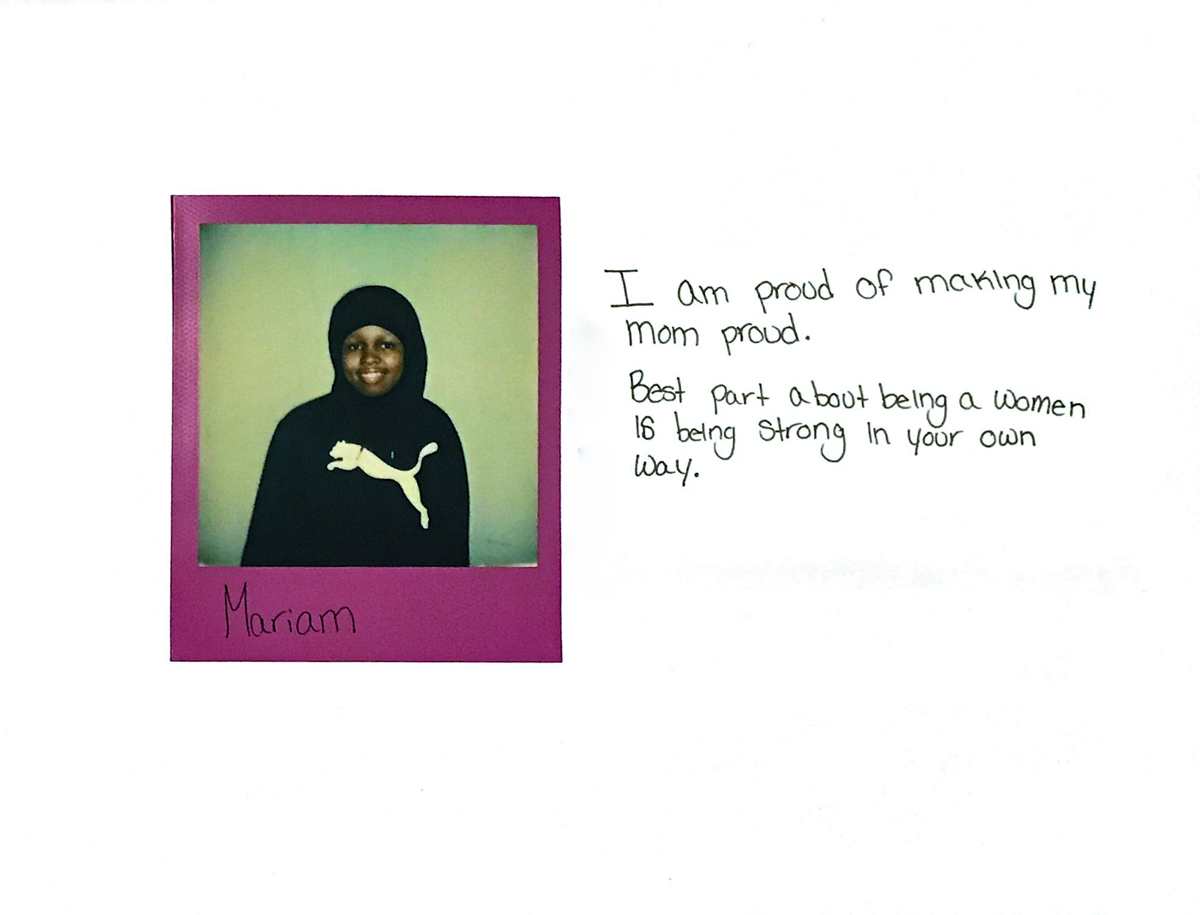 I am proud of making my
mom proud.
Best part about being a women
is being strong in your own
way.
Mariam